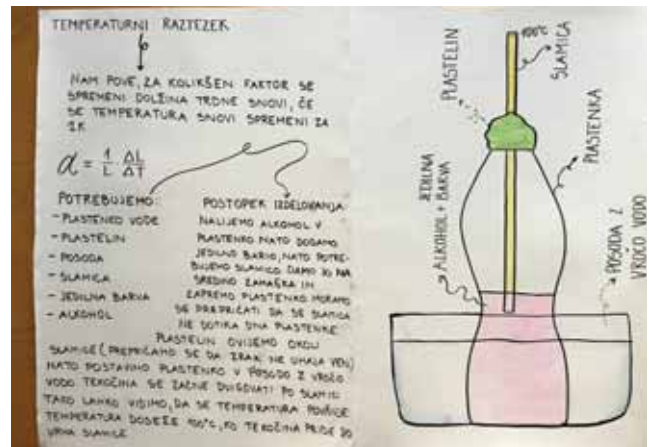 TEMPERATURNI RAZTEZEK
NAM POVE, ZA KOLIKŠEN FAKTOR SE
SPREMENI DOLŽINA TRDNE SNOVI, ČE
SE TEMPERATURA SNOVI SPREMENI ZA
1K
α = 1/L ΔL/ΔT
POTREBUJEMO:
- PLASTENKO VODE
- PLASTELIN
- POSODA
- SLAMICA
- JEDILNA BARVA
- ALKOHOL
POSTOPEK IZDELOVANJA:
NALIJEMO ALKOHOL V
PLASTENKO NATO DODAMO
JEDILNO BARVO, NATO POTRE-
BUJEMO SLAMICO DAMO JO NA
SREDINO ZAMAŠKA IN
ZAPREMO PLASTENKO MORAMO
SE PREPRIČATI DA SE SLAMICA
NE DOTIKA DNA PLASTENKE
PLASTELIN OVIJEMO OKOLI
SLAMICE (PREPRIČAMO SE DA ZRAK NE UHAJA VEN)
NATO POSTAVIMO PLASTENKO V POSODO Z VROČO
VODO TEKOČINA SE ZAČNE DVIGOVATI PO SLAMICI
TAKO LAHKO VIDIMO, DA SE TEMPERATURA POVIŠUJE
TEMPERATURA DOSEŽE 100°C, KO TEKOČINA PRIDE DO
VRHA SLAMICE
100°C
SLAMICA
PLASTELIN
PLASTENKA
JEDILNA
ALKOHOL + BARVA
POSODA Z
VROČO VODO